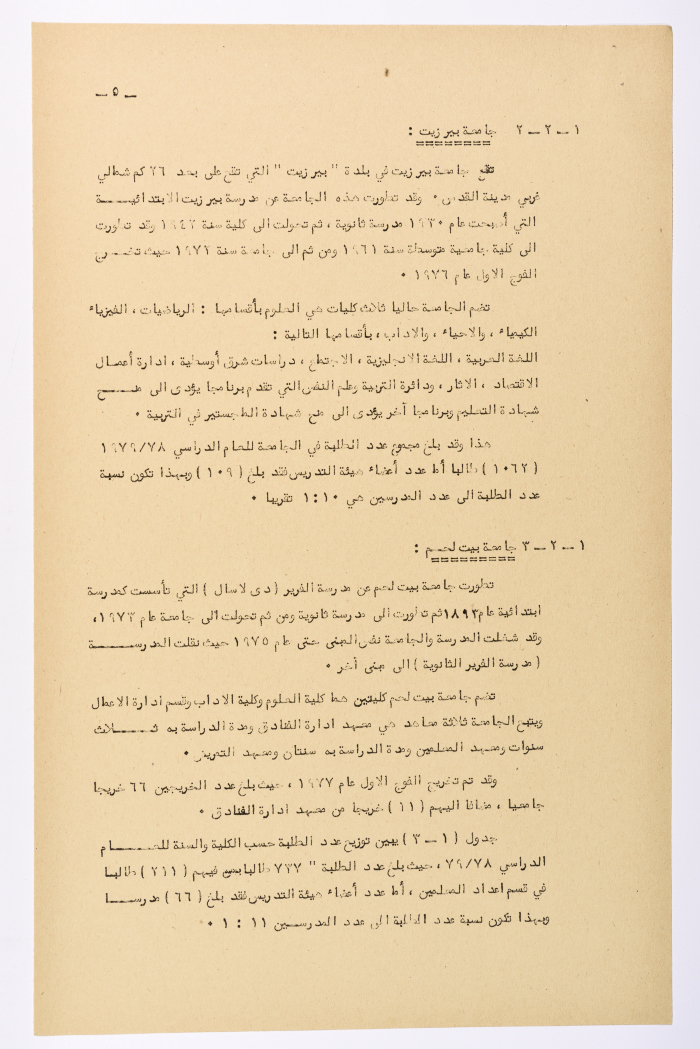 ـ ٥ ـ
١ ـ ٢ ـ ٢ جامعة بيرزيت :
تقع جامعة بيرزيت في بلدة " بيرزيت " التي تقع على بعد ٢٦ كم شمالي
غربي مدينة القدس ٠ وقد تطورت هذه الجامعة عن مدرسة بيرزيت الابتدائيـــة
التي أصبحت عام ١٩٣٠ مدرسة ثانوية ، ثم تحولت الى كلية سنة ١٩٤٢ وقد تطورت
الى كلية جامعية متوسطة سنة ١٩٦١ ومن ثم الى جامعة سنة ١٩٧٢ حيث تخــرج
الفوج الاول عام ١٩٧٦ ٠
تضم الجامعة حاليا ثلاث كليات هي العلوم بأقسامها : الرياضيات ، الفيزياء
الكيمياء ، والاحياء ، والاداب ، بأقسامها التالية :
اللغة العربية ، اللغة الانجليزية ، الاجتماع ، دراسات شرق أوسطية ، ادارة أعمـال
الاقتصاد ، الاثار ، ودائرة التربية وعلم النفس التي تقدم برنامجا يؤدى الى منـــح
شهادة التعليم وبرنامجا آخر يؤدى الى منح شهادة الماجستير في التربية ٠
هذا وقد بلغ مجموع عدد الطلبة في الجامعة للعام الدراسي ١٩٧٩/٧٨
( ١٠٦٢ ) طالبا أما عدد أعضاء هيئة التدريس فقد بلغ ( ١٠٩ ) وبهذا تكون نسبة
عدد الطلبة الى عدد المدرسين هي ١:١٠ تقريبا ٠
١ ـ ٢ ـ ٣ جامعة بيت لحـم :
تطورت جامعة بيت لحم عن مدرسة الفرير ( دى لاسال ) التي تأسست كمدرسة
ابتدائية عام ١٨٩٣ ثم تطورت الى مدرسة ثانوية ومن ثم تحولت الى جامعة عام ١٩٧٣،
وقد شغلت المدرسة والجامعة نفس المبنى حتى عام ١٩٧٥ حيث نقلت المدرســـة
( مدرسة الفرير الثانوية ) الى مبنى آخر ٠
تضم جامعة بيت لحم كليتين هما كلية العلوم وكلية الاداب وقسم ادارة الاعمال
ويتبع الجامعة ثلاثة معاهد هي معهد ادارة الفنادق ومدة الدراسة به ثـــلاث
سنوات ومعهد المعلمين ومدة الدراسة به سنتان ومعهد التمريض ٠
وقد تم تخريج الفوج الاول عام ١٩٧٧ ، حيث بلغ عدد الخريجين ٦٦ خريجا
جامعيا ، مضافا اليهم ( ١١ ) خريجا من معهد ادارة الفنادق ٠
جدول ( ١ــ٣ ) يبين توزيع عدد الطلبة حسب الكلية والسنة للعـــام
الدراسي ٧٩/٧٨ ، حيث بلغ عدد الطلبة " ٧٣٧ طالبا بمن فيهم ( ٢١١ ) طالبـا
في قسم اعداد المعلمين ، أما عدد أعضاء هيئة التدريس فقد بلغ ( ٦٦ ) مدرســا
وبهذا تكون نسبة عدد الطلبة الى عدد المدرسـين ١١ : ١ ٠